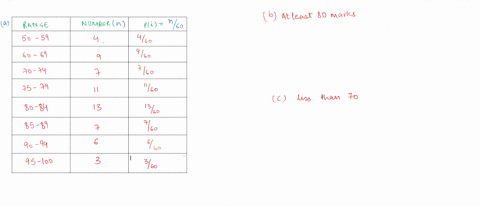 (a) RANGE NUMBER(n) P(i) = n/60
50-59 4 4/60
60-69 9 9/60
70-74 7 7/60
75-79 11 11/60
80-84 13 13/60
85-89 7 7/60
90-94 6 6/60
95-100 3 3/60
(b) At least 80 marks
(c) less than 70